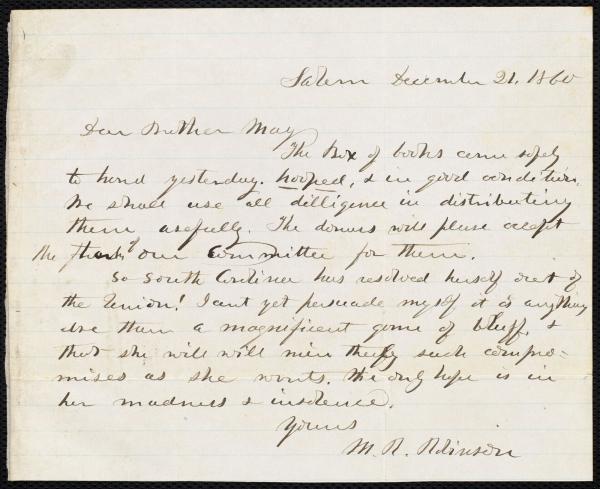 Salem December 21, 1860
Dear Brother May
The Box of books came safely
to hand yesterday. hooped, & in good condition.
We shall use all dilligence in distributing
them usefully. The donors will please accept
the thanks of our committee for them.
So South Carolina has resolved herself out of
the Union! I cant yet persuade myself it is anything
else than a magnificent game of bluff, &
that she will will win thereby such compro=
mises as she wants. The only hope is in
her madness & insolence.
Yours
M. R. Robinson